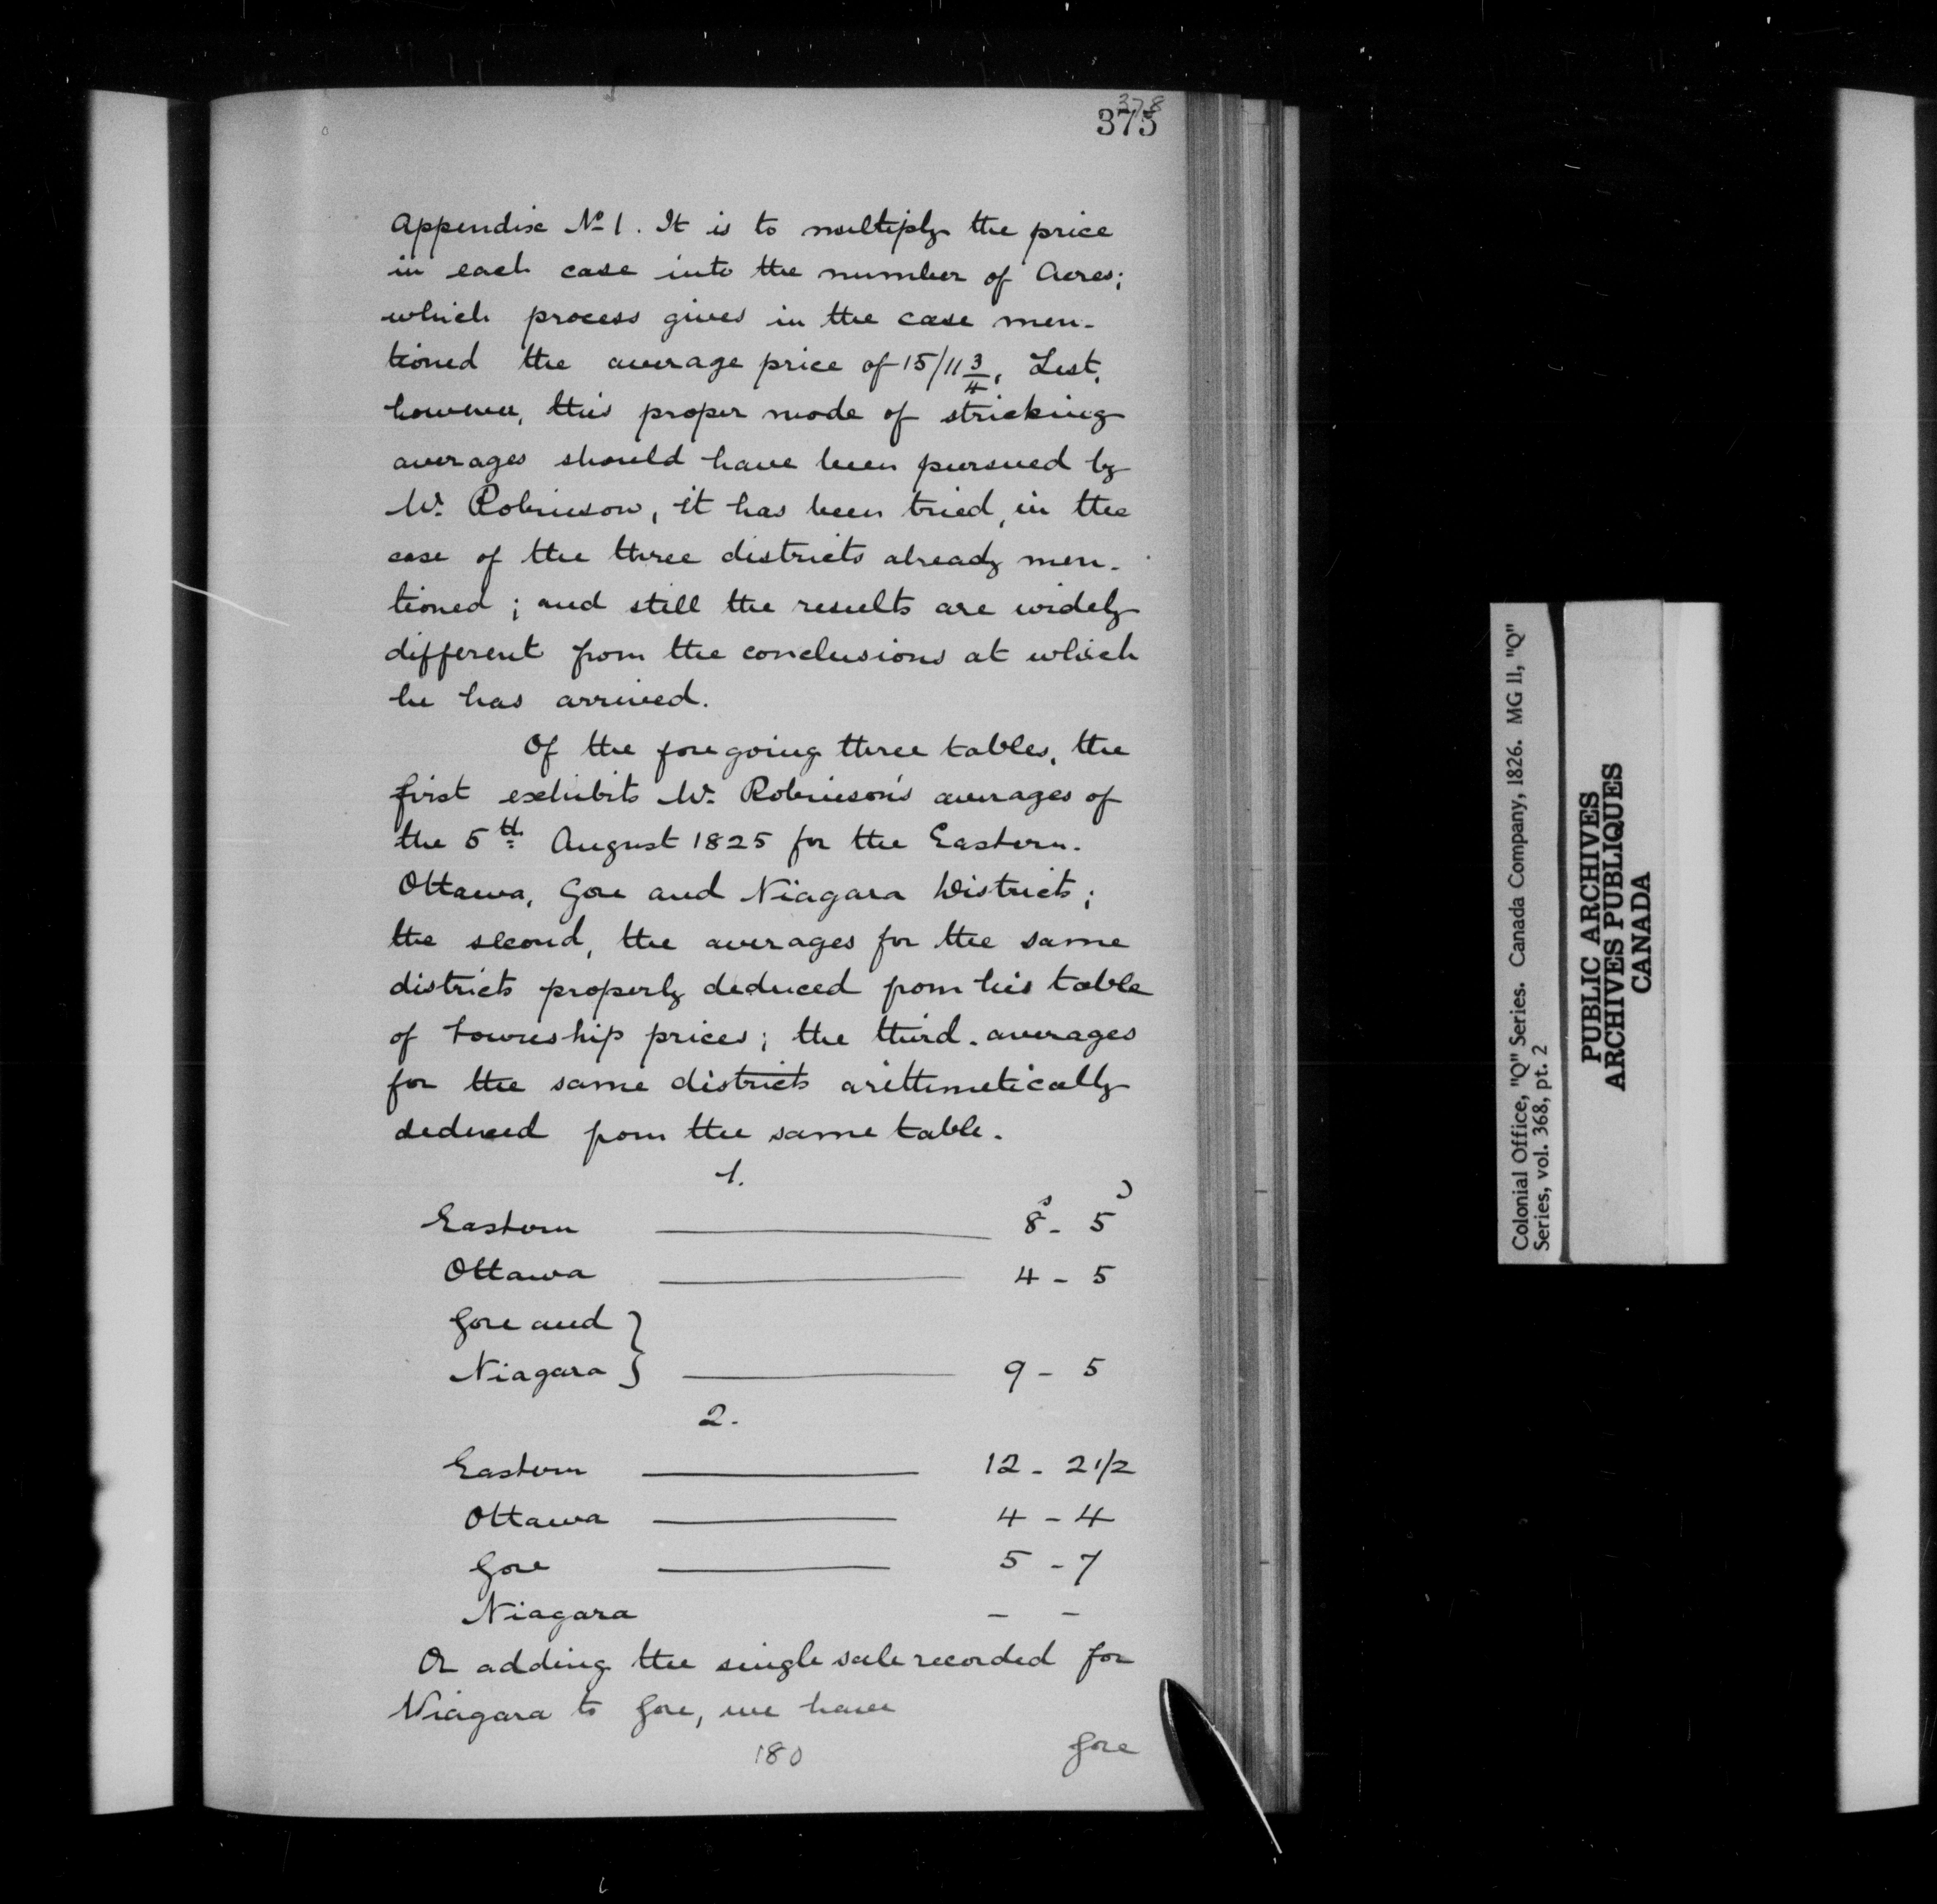 378
375
Appendix No 1. It is to multiply the price
in each case into the number of Acres;
which process gives in the case men-
tioned the average price of 15/11 3/4. Lest,
however, this proper mode of stricking
averages should have been pursued by
Mr. Robinson, it has been tried, in the
case of the three districts already men-
tioned; and still the results are widely
different from the conclusions at which
he has arrived.
Of the foregoing three tables, the
first exhibits Mr. Robinson's averages of
the 5th August 1825 for the Eastern.
Ottawa, Gore and Niagara Districts;
the second, the averages for the same
districts properly deduced from his table
of township prices; the third. averages
for the same districts arithmetically
deduced from the same table.
1.
s D
Eastern 8 - 5
Ottawa 4 - 5
Gore and }
Niagara } 9 - 5
2.
Eastern 12 - 2 1/2
Ottawa 4 - 4
Gore 5 - 7
Niagara - -
Or adding the single sale recorded for
Niagara to Gore, we have
180 Gore
Colonial Office, "Q" Series. Canada Company, 1826. MG 11, "Q"
Series, vol. 368, pt. 2
PUBLIC ARCHIVES
ARCHIVES PUBLIQUES
CANADA